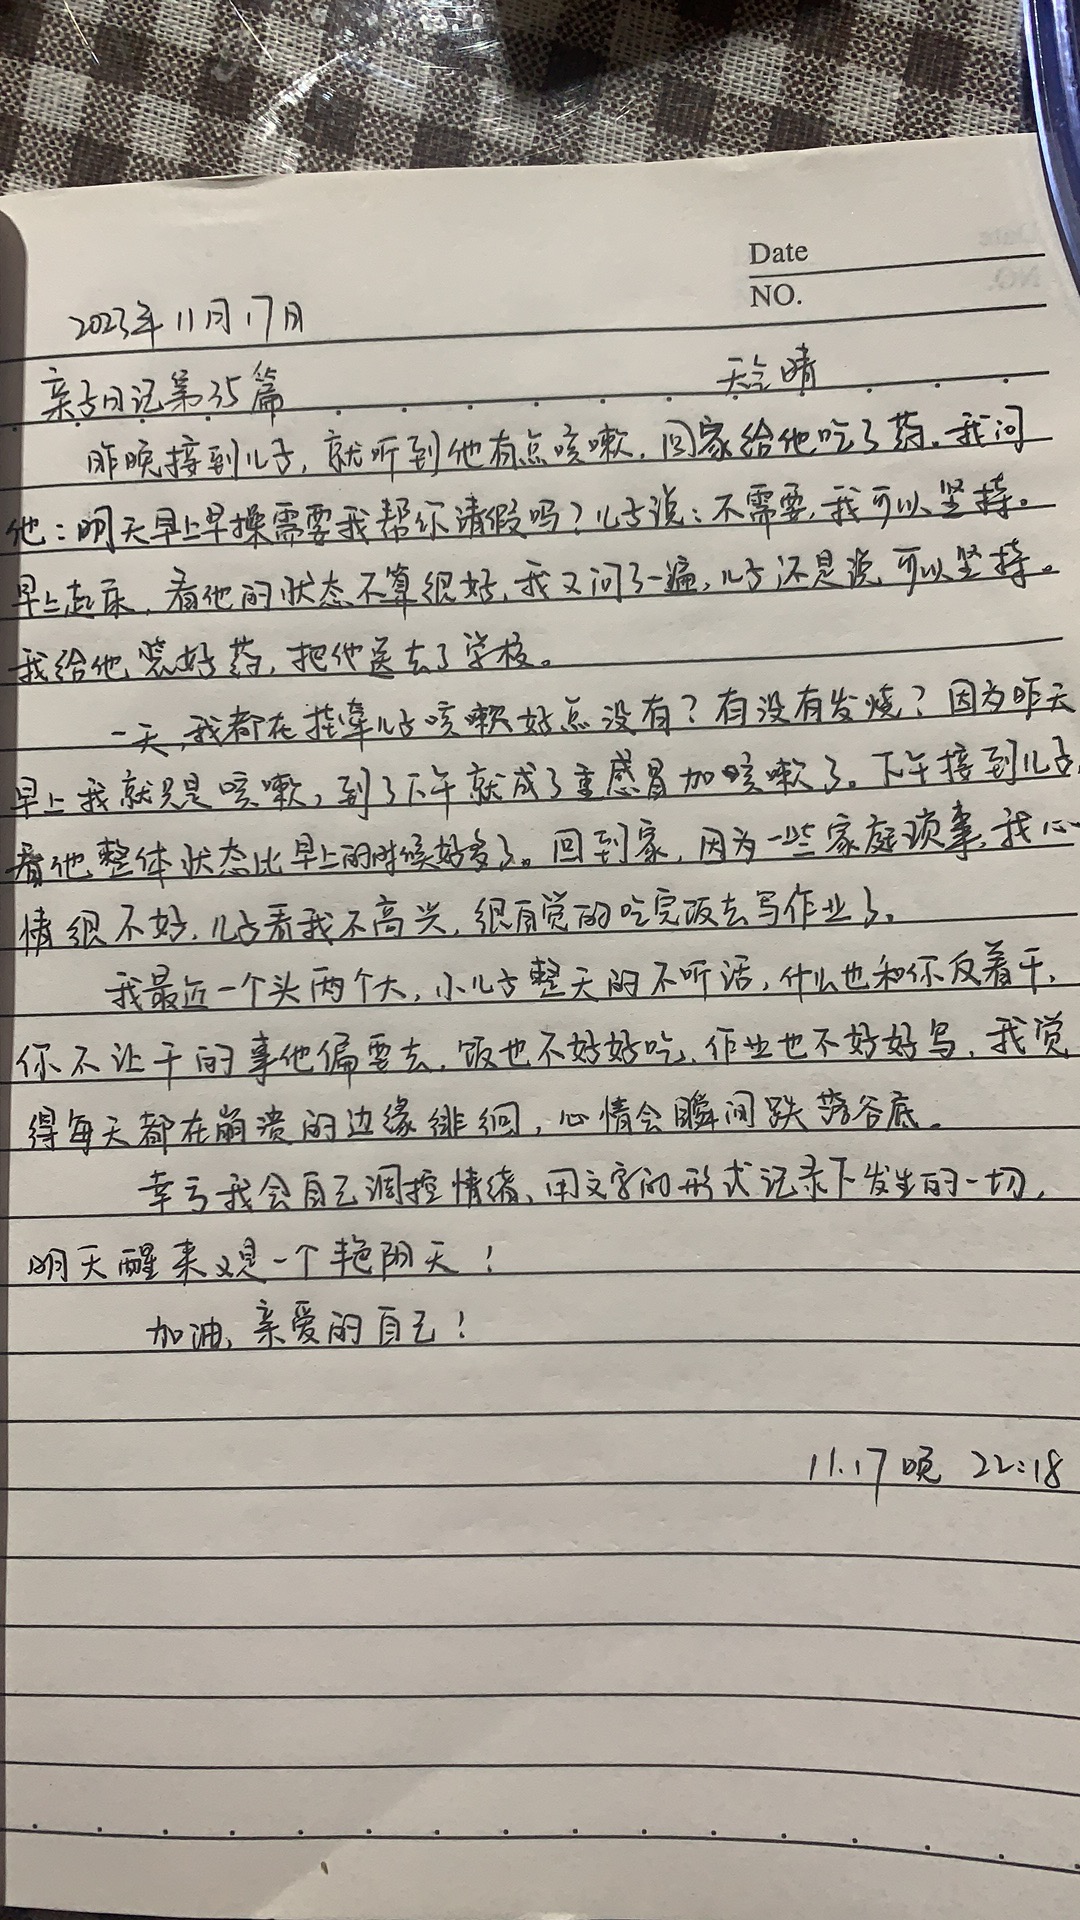 Date
NO.
2023年11月17日
亲子日记第35篇 天气晴
昨晚接到儿子,就听到他有点咳嗽,回家给他吃了药。我问
他:明天早上早操需要我帮你请假吗?儿子说:不需要,我可以坚持。
早上起床,看他的状态不算很好,我又问了一遍,儿子还是说可以坚持。
我给他装好药,把他送去了学校。
一天,我都在挂牵儿子咳嗽好点没有?有没有发烧?因为昨天
早上我就只是咳嗽,到了下午就成了重感冒加咳嗽了。下午接到儿子,
看他整体状态比早上的时候好多了。回到家,因为一些家庭琐事,我心
情很不好,儿子看我不高兴,很自觉的吃完饭去写作业了。
我最近一个头两个大,小儿子整天的不听话,什么也和你反着干,
你不让干的事他偏要去,饭也不好好吃,作业也不好好写,我觉
得每天都在崩溃的边缘徘徊,心情会瞬间跌落谷底。
幸亏我会自己调控情绪,用文字的形式记录下发生的一切,
明天醒来又是一个艳阴天!
加油,亲爱的自己!
11.17晚 22:18